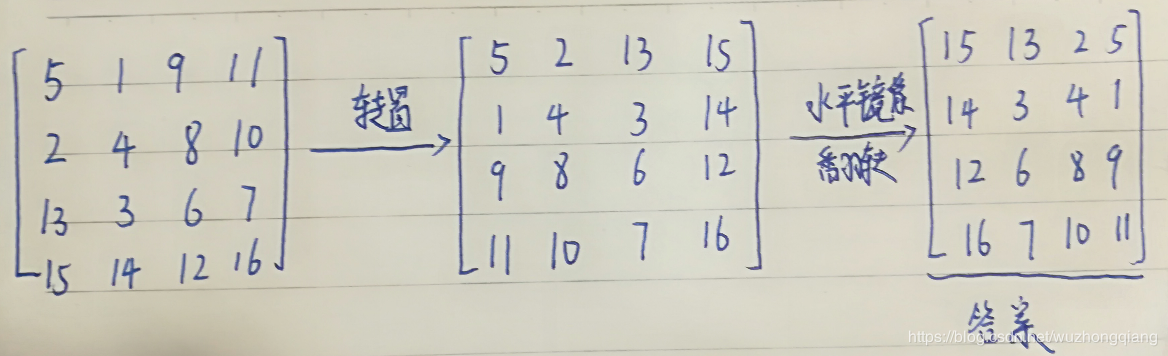 5 1 9 11
2 4 8 10
13 3 6 7
15 14 12 16
转置
5 2 13 15
1 4 3 14
9 8 6 12
11 10 7 16
水平镜像
翻转
15 13 2 5
14 3 4 1
12 6 8 9
16 7 10 11
答案
https://blog.csdn.net/wuzhongqiang